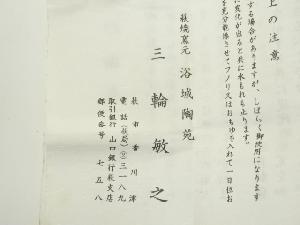 上の注意
する場合がありますが、しばらく御使用になります
に変化が出ると共に水もれも止ります。
を充分乾燥させてフノリ又はおもゆを入れて一日位お
萩焼窯元 浴城陶苑
三輪敏之
萩市香川津
電話(萩局)②三一八九
取引銀行 山口銀行萩支店
郵便番号 七五八